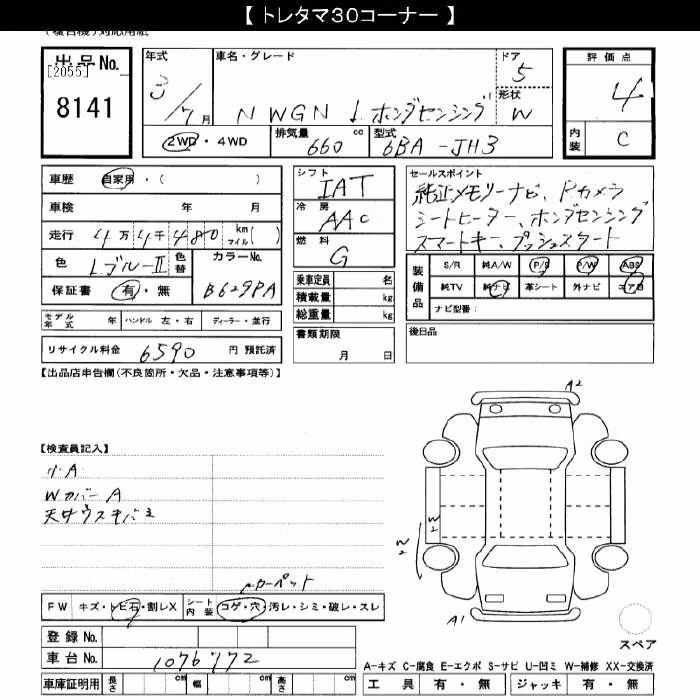 【 トレタマ30コーナー 】
出品No. [2055] 8141
年式 3/7月
車名・グレード N WGN L ホンダセンシング
ドア 5
形状 W
評価点 4
内装 C
2WD・4WD
排気量 660 cc
型式 6BA-JH3
車歴 自家用・( )
車検 年 月
走行 4万4千480 km マイル( )
色 Lブルー-II 色替
カラーNo. B629PA
保証書 有・無
モデル年式 年 ハンドル 左・右 ディーラー・並行
リサイクル料金 6590 円 預託済
シフト IAT
冷房 AAC
燃料 G
乗車定員 名
積載量 kg
総重量 kg
書類期限 月 日
セールスポイント
純正メモリーナビ、Pカメラ
シートヒーター、ホンダセンシング
スマートキー、プッシュスタート
装備品 S/R 純A/W P/S P/W ABS
純TV 純ナビ 革シート 外ナビ エアB
ナビ型番:
後日品
【出品店申告欄(不良箇所・欠品・注意事項等)】
【検査員記入】
小A
Wカバー A
天井ウスキバミ
カーペット
FW キズ・トビ石・割レX シート内装 コゲ・穴・汚レ・シミ・破レ・スレ
登録No.
車台No. 1076772
車庫証明用 長さ cm 幅 cm 高さ cm
A2
W2
W2
A1
スペア
A-キズ C-腐食 E-エクボ S-サビ U-凹ミ W-補修 XX-交換済
工具 有・無 ジャッキ 有・無